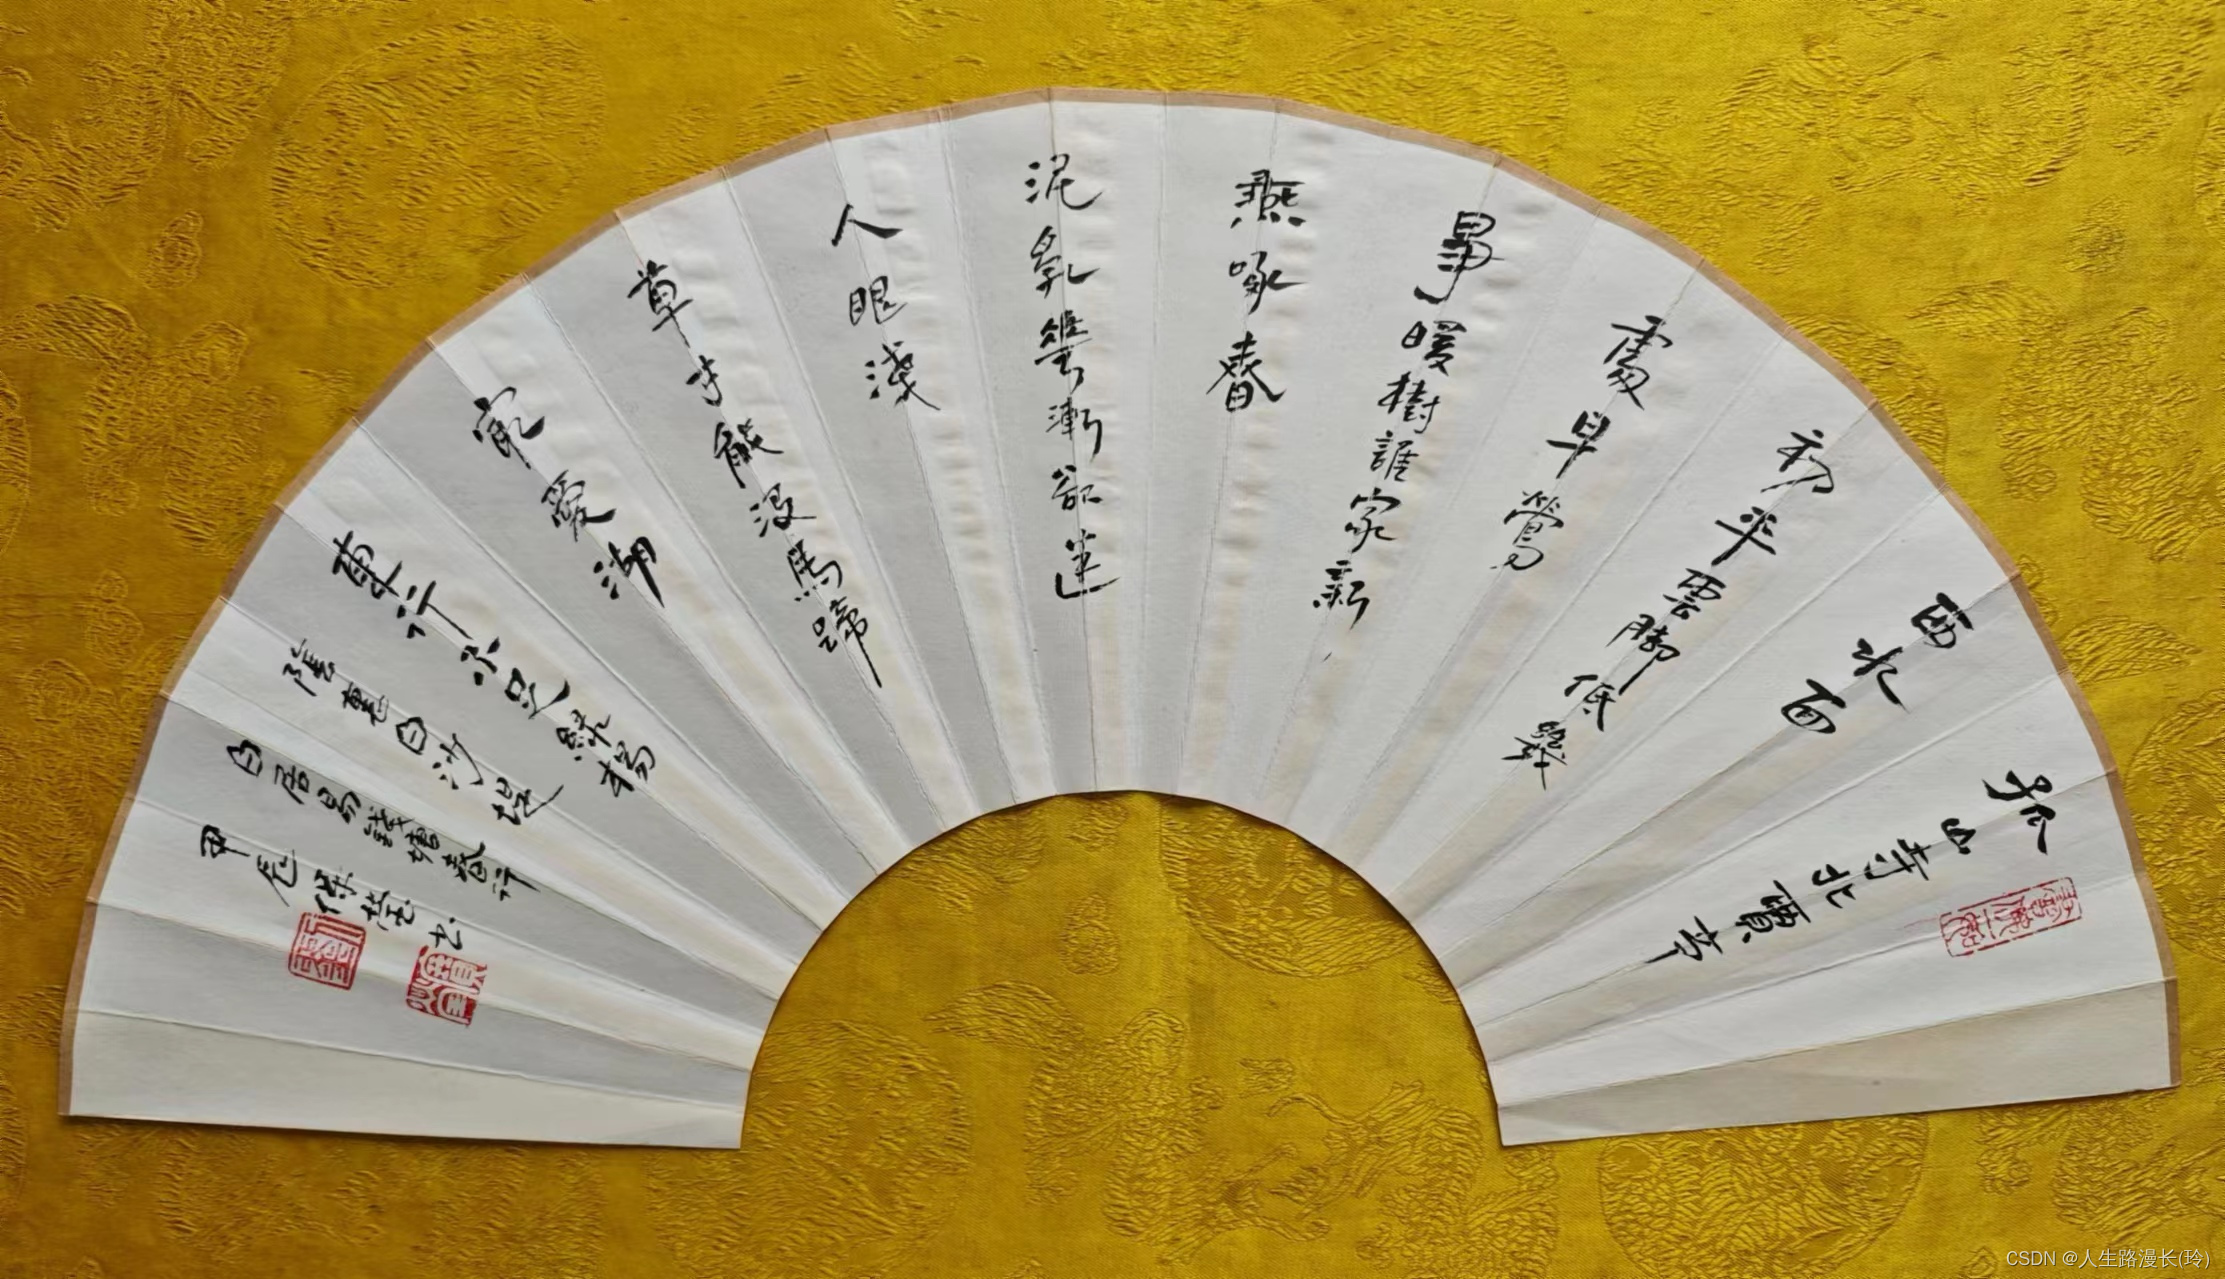 孤山寺北賈亭
西水面
初平雲脚低幾
處早鶯
爭暖樹誰家新
燕啄春
泥亂華漸欲迷
人眼淺
草才能没馬蹄
最愛湖
東行不足緑楊
陰裏白沙堤
白居易錢塘春行
甲辰書
CSDN @人生路漫长(玲)